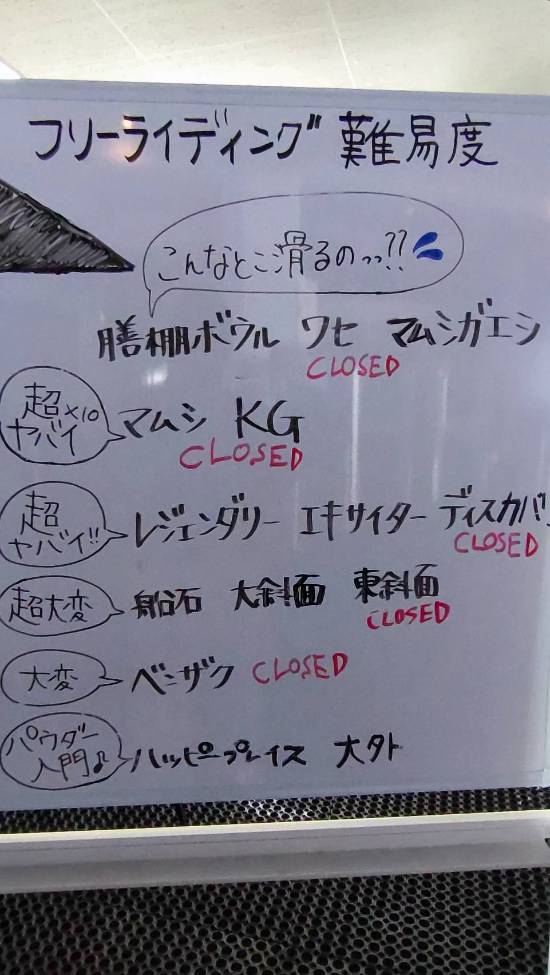 フリーライディング 難易度
こんなとこ滑るのっっ??
膳棚ボウル ワセ マムシガエシ
CLOSED
超×10
ヤバイ
マムシ KG
CLOSED
超
ヤバイ!!
レジェンダリー エキサイター ディスカバ!
CLOSED
超大変
船石 大斜面 東斜面
CLOSED
大変
ベニザク CLOSED
パウダー
入門♪
ハッピープレイス 大外